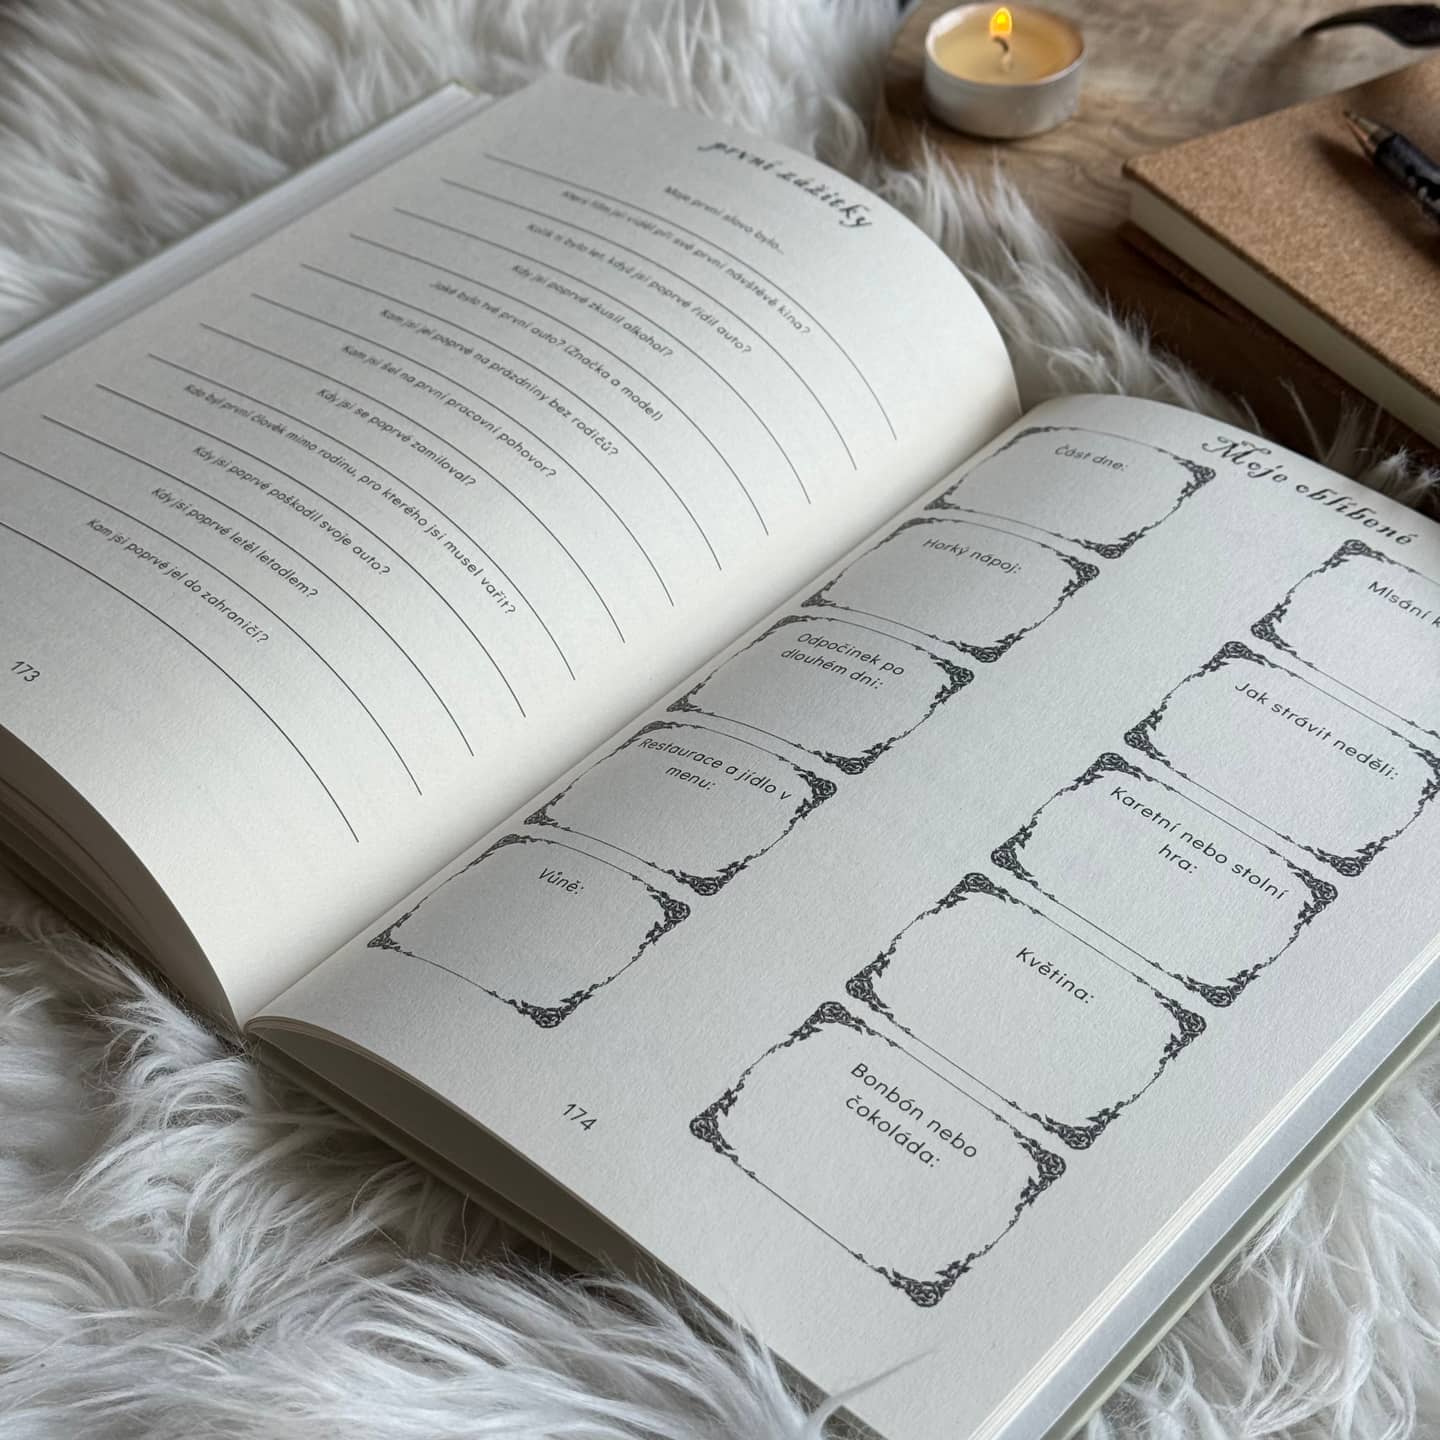 první zážitky
Moje první slovo bylo...
Který film jsi viděl při své první návštěvě kina?
Kolik ti bylo let, když jsi poprvé řídil auto?
Kdy jsi poprvé zkusil alkohol?
Jaké bylo tvé první auto? (Značka a model)
Kam jsi jel poprvé na prázdniny bez rodičů?
Kam jsi šel na první pracovní pohovor?
Kdy jsi se poprvé zamiloval?
Kdo byl první člověk mimo rodinu, pro kterého jsi musel vařit?
Kdy jsi poprvé poškodil svoje auto?
Kdy jsi poprvé letěl letadlem?
Kam jsi poprvé jel do zahraničí?
173
Moje oblíbené
Část dne:
Horký nápoj:
Odpočinek po
dlouhém dni:
Restaurace a jídlo v
menu:
Vůně:
Mlsání
Jak strávit neděli:
Karetní nebo stolní
hra:
Květina:
Bonbón nebo
čokoláda:
174